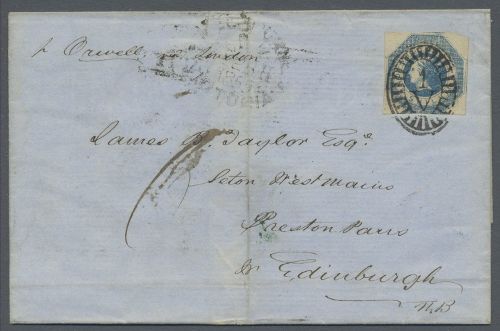 p Orwell via London
VICTORIA
1
James B. Taylor Esqr.
Seton West Mains
Preston Pans
Nr Edinburgh
N.B